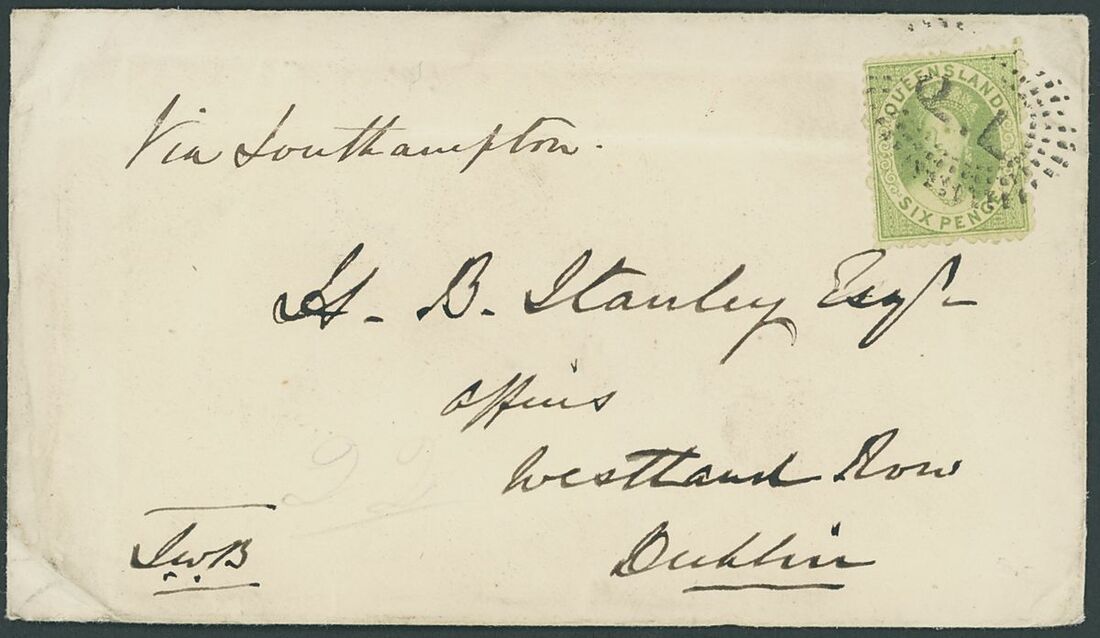 QUEENSLAND
Q.L
SIX PENCE
Via Southampton.
H. B. Stanley Esqr
Offices
Westland Row
Dublin
J.W.B